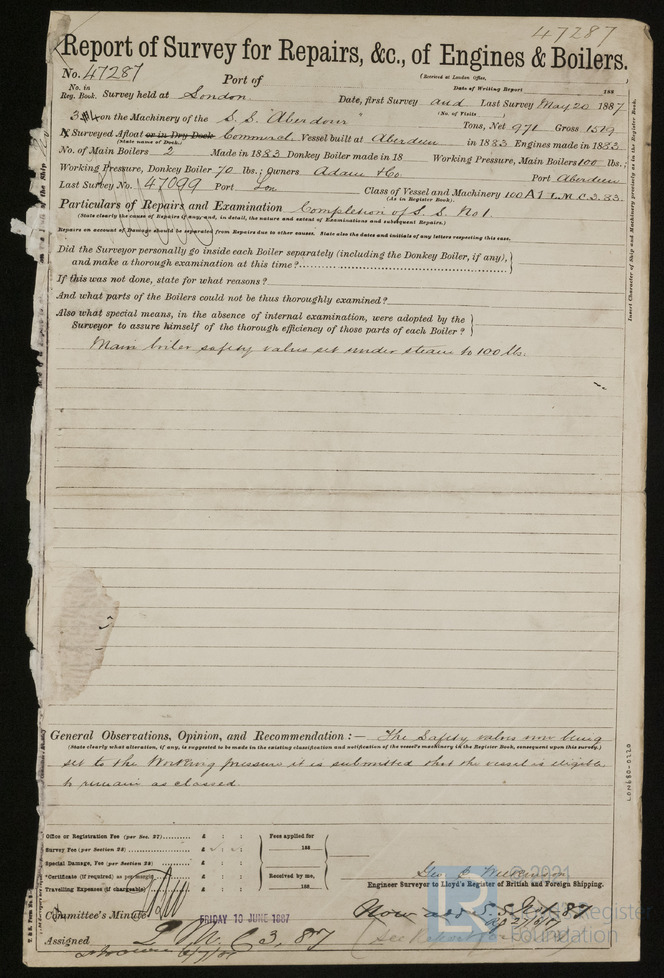 47287
Report of Survey for Repairs, &c., of Engines & Boilers.
(Received at London Office,
No. 47287 Port of
Date of Writing Report 188
No. in Reg. Book. Survey held at London Date, first Survey and Last Survey May 20 1887
(No. of Visits
on the Machinery of the S.S. "Aberdour" Tons, Net 971 Gross 1519
Surveyed Afloat or in Dry Dock Commercl. Vessel built at Aberdeen in 1883 Engines made in 1883
(State name of Dock.)
No. of Main Boilers 2 Made in 1883 Donkey Boiler made in 18 Working Pressure, Main Boilers 100 lbs.;
Working Pressure, Donkey Boiler 70 lbs.; Owners Adam & Co Port Aberdeen
Last Survey No. 47099 Port Lon Class of Vessel and Machinery 100 A1 L.M.C 3.83.
(As in Register Book).
Particulars of Repairs and Examination Completion of S. S. No 1.
(State clearly the cause of Repairs if any, and, in detail, the nature and extent of Examinations and subsequent Repairs.)
Repairs on account of Damage should be separated from Repairs due to other causes. State also the dates and initials of any letters respecting this case.
Did the Surveyor personally go inside each Boiler separately (including the Donkey Boiler, if any),
and make a thorough examination at this time?
If this was not done, state for what reasons?
And what parts of the Boilers could not be thus thoroughly examined?
Also what special means, in the absence of internal examination, were adopted by the
Surveyor to assure himself of the thorough efficiency of those parts of each Boiler?
Main boiler safety valves set under steam to 100 lbs.
General Observations, Opinion, and Recommendation :— The Safety valves now being
(State clearly what alteration, if any, is suggested to be made in the existing classification and notification of the vessel's machinery in the Register Book, consequent upon this survey.)
set to the Working pressure it is submitted that the vessel is eligible
to remain as classed.
Office or Registration Fee (per Sec. 27) £ : : Fees applied for
Survey Fee (per Section 28) £ : : 188
Special Damage, Fee (per Section 28) £ : :
*Certificate (if required) as per margin £ : : Received by me,
Travelling Expenses (if chargeable) £ : : 188
Engineer Surveyor to Lloyd's Register of British and Foreign Shipping.
Committee's Minute FRIDAY 10 JUNE 1887
Assigned L M C 3, 87
Insert Character of Ship and Machinery precisely as in the Register Book.
LON680-0220
© 2021
LR Lloyd's Register
Foundation